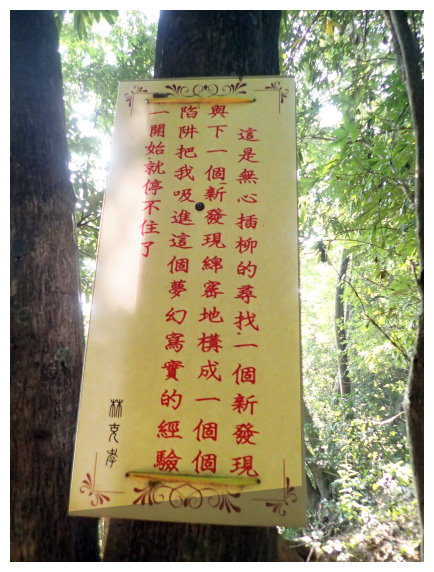 這是無心插柳的尋找一個新發現
與下一個新發現綿密地構成一個個
陷阱把我吸進這個夢幻寫實的經驗
一開始就停不住了
林克孝